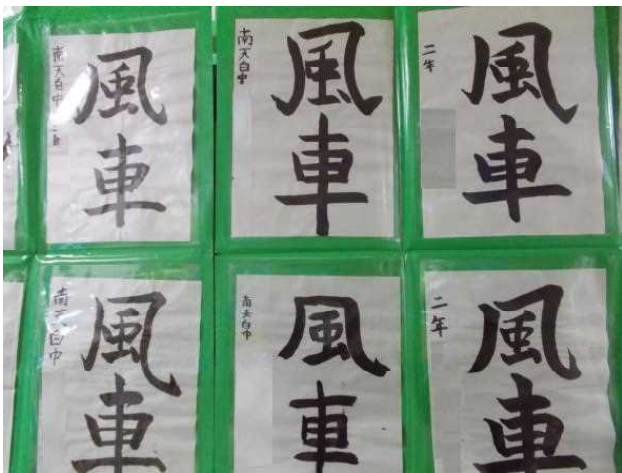 南天白中
風車
南天白中
風車
二年
風車
南天白中
風車
南天白中
風車
二年
風車